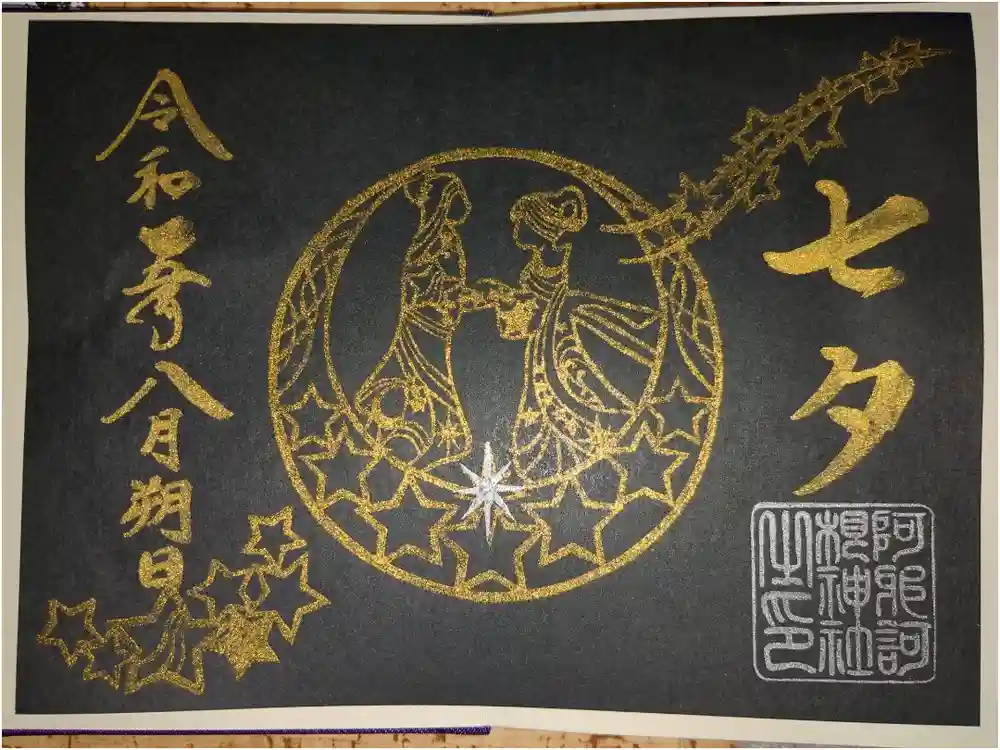 七夕
阿邪訶
根神社
之印
令和八月朔日